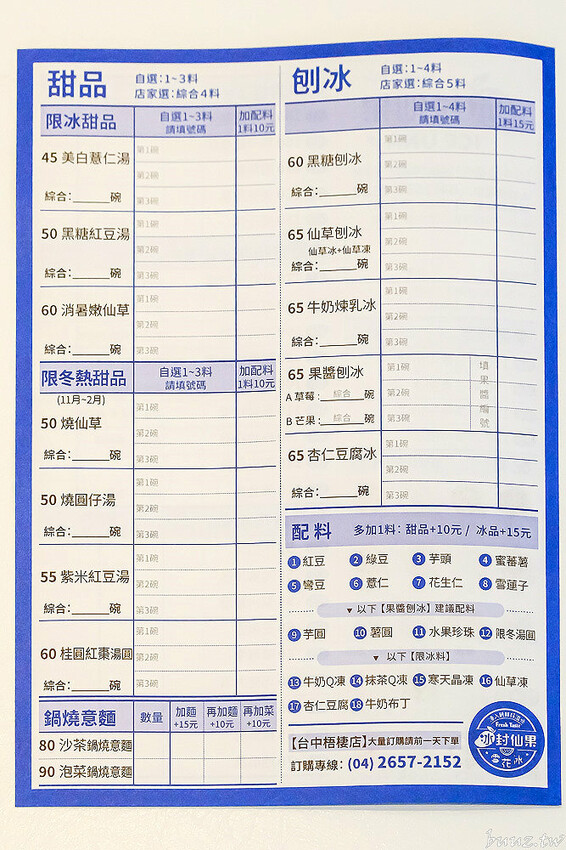 甜品
自選：1~3料
店家選：綜合4料
限冰甜品
自選1~3料
請填號碼
加配料
1料10元
45 美白薏仁湯
綜合：______碗
第1碗
第2碗
第3碗
50 黑糖紅豆湯
綜合：______碗
第1碗
第2碗
第3碗
60 消暑嫩仙草
綜合：______碗
第1碗
第2碗
第3碗
限冬熱甜品
自選1~3料
請填號碼
加配料
1料10元
(11月~2月)
50 燒仙草
綜合：______碗
第1碗
第2碗
第3碗
50 燒圓仔湯
綜合：______碗
第1碗
第2碗
第3碗
55 紫米紅豆湯
綜合：______碗
第1碗
第2碗
第3碗
60 桂圓紅棗湯圓
綜合：______碗
第1碗
第2碗
第3碗
鍋燒意麵
數量
加麵
+15元
再加麵
+10元
再加菜
+10元
80 沙茶鍋燒意麵
90 泡菜鍋燒意麵
刨冰
自選：1~4料
店家選：綜合5料
自選1~4料
請填號碼
加配料
1料15元
60 黑糖刨冰
綜合：______碗
第1碗
第2碗
第3碗
65 仙草刨冰
仙草冰+仙草凍
綜合：______碗
第1碗
第2碗
第3碗
65 牛奶煉乳冰
綜合：______碗
第1碗
第2碗
第3碗
65 果醬刨冰
A 草莓：綜合 碗
B 芒果：綜合 碗
第1碗
第2碗
第3碗
填果醬編號
65 杏仁豆腐冰
綜合：______碗
第1碗
第2碗
第3碗
配料 多加1料：甜品+10元 / 冰品+15元
1 紅豆 2 綠豆 3 芋頭 4 蜜蕃薯
5 彎豆 6 薏仁 7 花生仁 8 雪蓮子
▼以下【果醬刨冰】建議配料
9 芋圓 10 薯圓 11 水果珍珠 12 限冬湯圓
▼以下【限冰料】
13 牛奶Q凍 14 抹茶Q凍 15 寒天晶凍 16 仙草凍
17 杏仁豆腐 18 牛奶布丁
【台中梧棲店】大量訂購請前一天下單
訂購專線：(04) 2657-2152
Fresh Taste
冰封仙果
花冰
bunz.tw